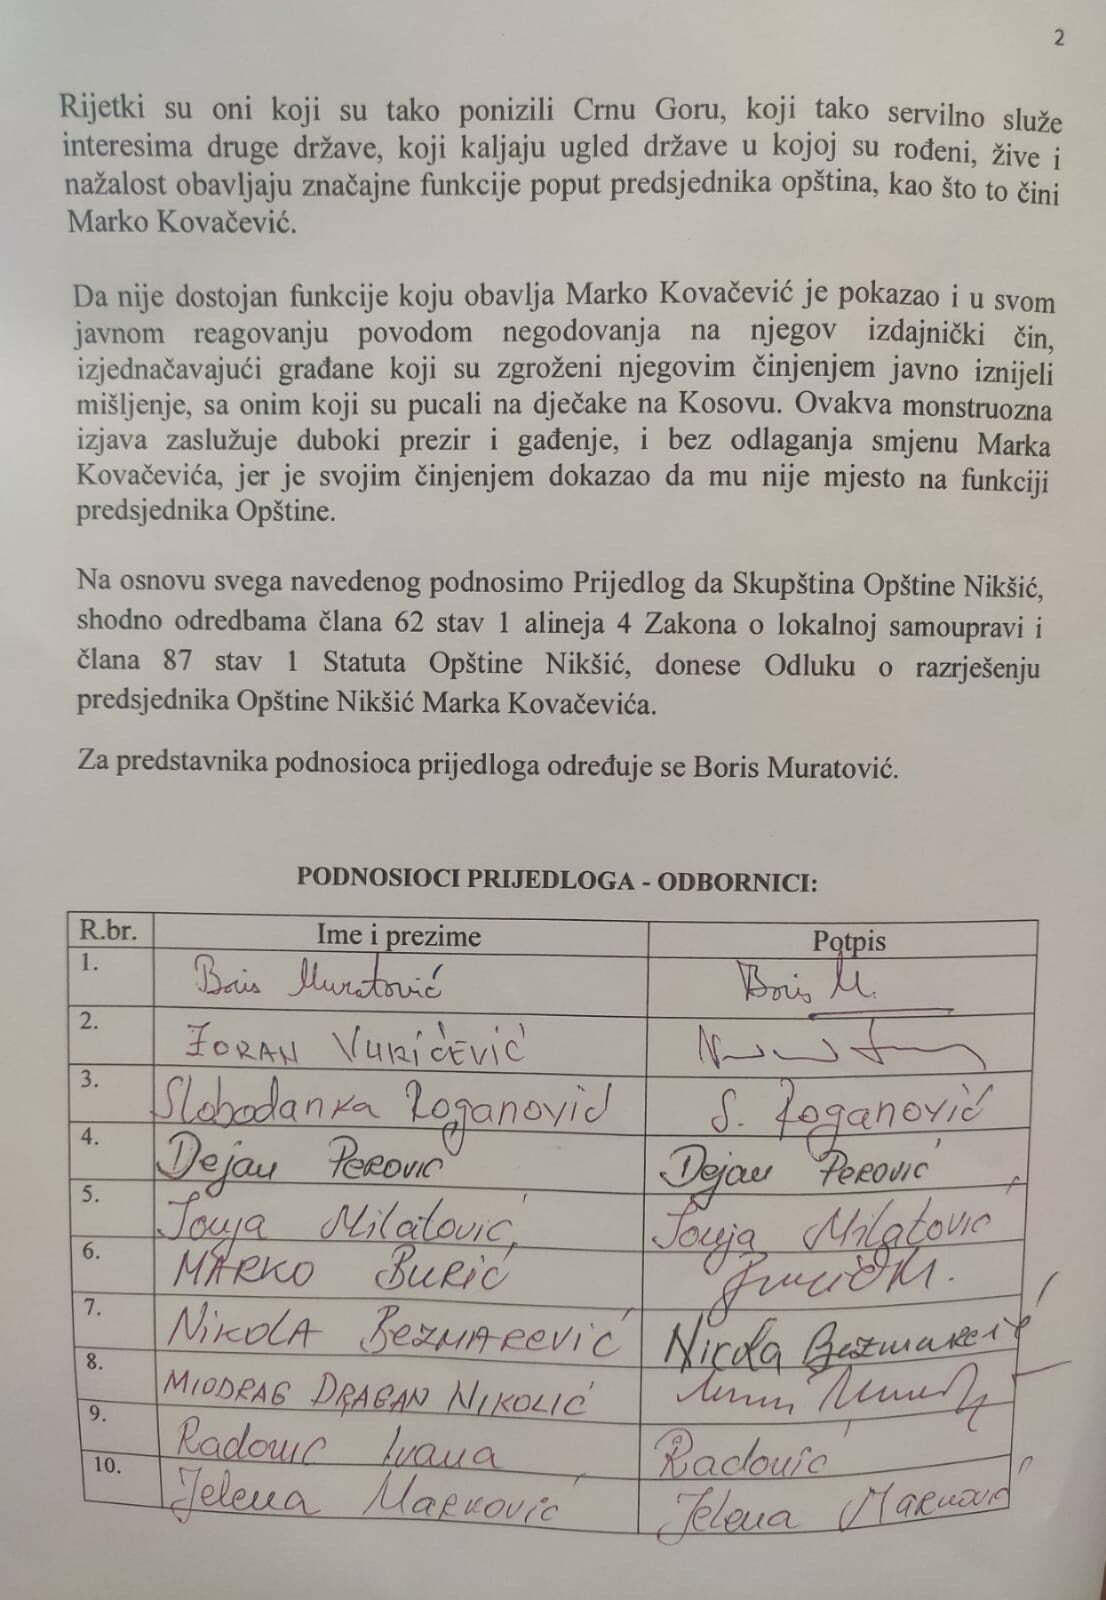 2
Rijetki su oni koji su tako ponizili Crnu Goru, koji tako servilno služe
interesima druge države, koji kaljaju ugled države u kojoj su rođeni, žive i
nažalost obavljaju značajne funkcije poput predsjednika opština, kao što to čini
Marko Kovačević.
Da nije dostojan funkcije koju obavlja Marko Kovačević je pokazao i u svom
javnom reagovanju povodom negodovanja na njegov izdajnički čin,
izjednačavajući građane koji su zgroženi njegovim činjenjem javno iznijeli
mišljenje, sa onim koji su pucali na dječake na Kosovu. Ovakva monstruozna
izjava zaslužuje duboki prezir i gađenje, i bez odlaganja smjenu Marka
Kovačevića, jer je svojim činjenjem dokazao da mu nije mjesto na funkciji
predsjednika Opštine.
Na osnovu svega navedenog podnosimo Prijedlog da Skupština Opštine Nikšić,
shodno odredbama člana 62 stav 1 alineja 4 Zakona o lokalnoj samoupravi i
člana 87 stav 1 Statuta Opštine Nikšić, donese Odluku o razrješenju
predsjednika Opštine Nikšić Marka Kovačevića.
Za predstavnika podnosioca prijedloga određuje se Boris Muratović.
PODNOSIOCI PRIJEDLOGA - ODBORNICI:
R.br. Ime i prezime Potpis
1. Boris Muratović Boris M.
2. ZORAN VUKIĆEVIĆ
3. Slobodanka Roganović S. Roganović
4. Dejan PEROVIĆ Dejan PEROVIĆ
5. Sonja Milatović Sonja Milatović
6. MARKO BURIĆ Burić M.
7. NIKOLA BEZMAREVIĆ Nikola Bezmarević
8. MIODRAG DRAGAN NIKOLIĆ
9. Radović Ivana Radović
10. Jelena Marković Jelena Marković